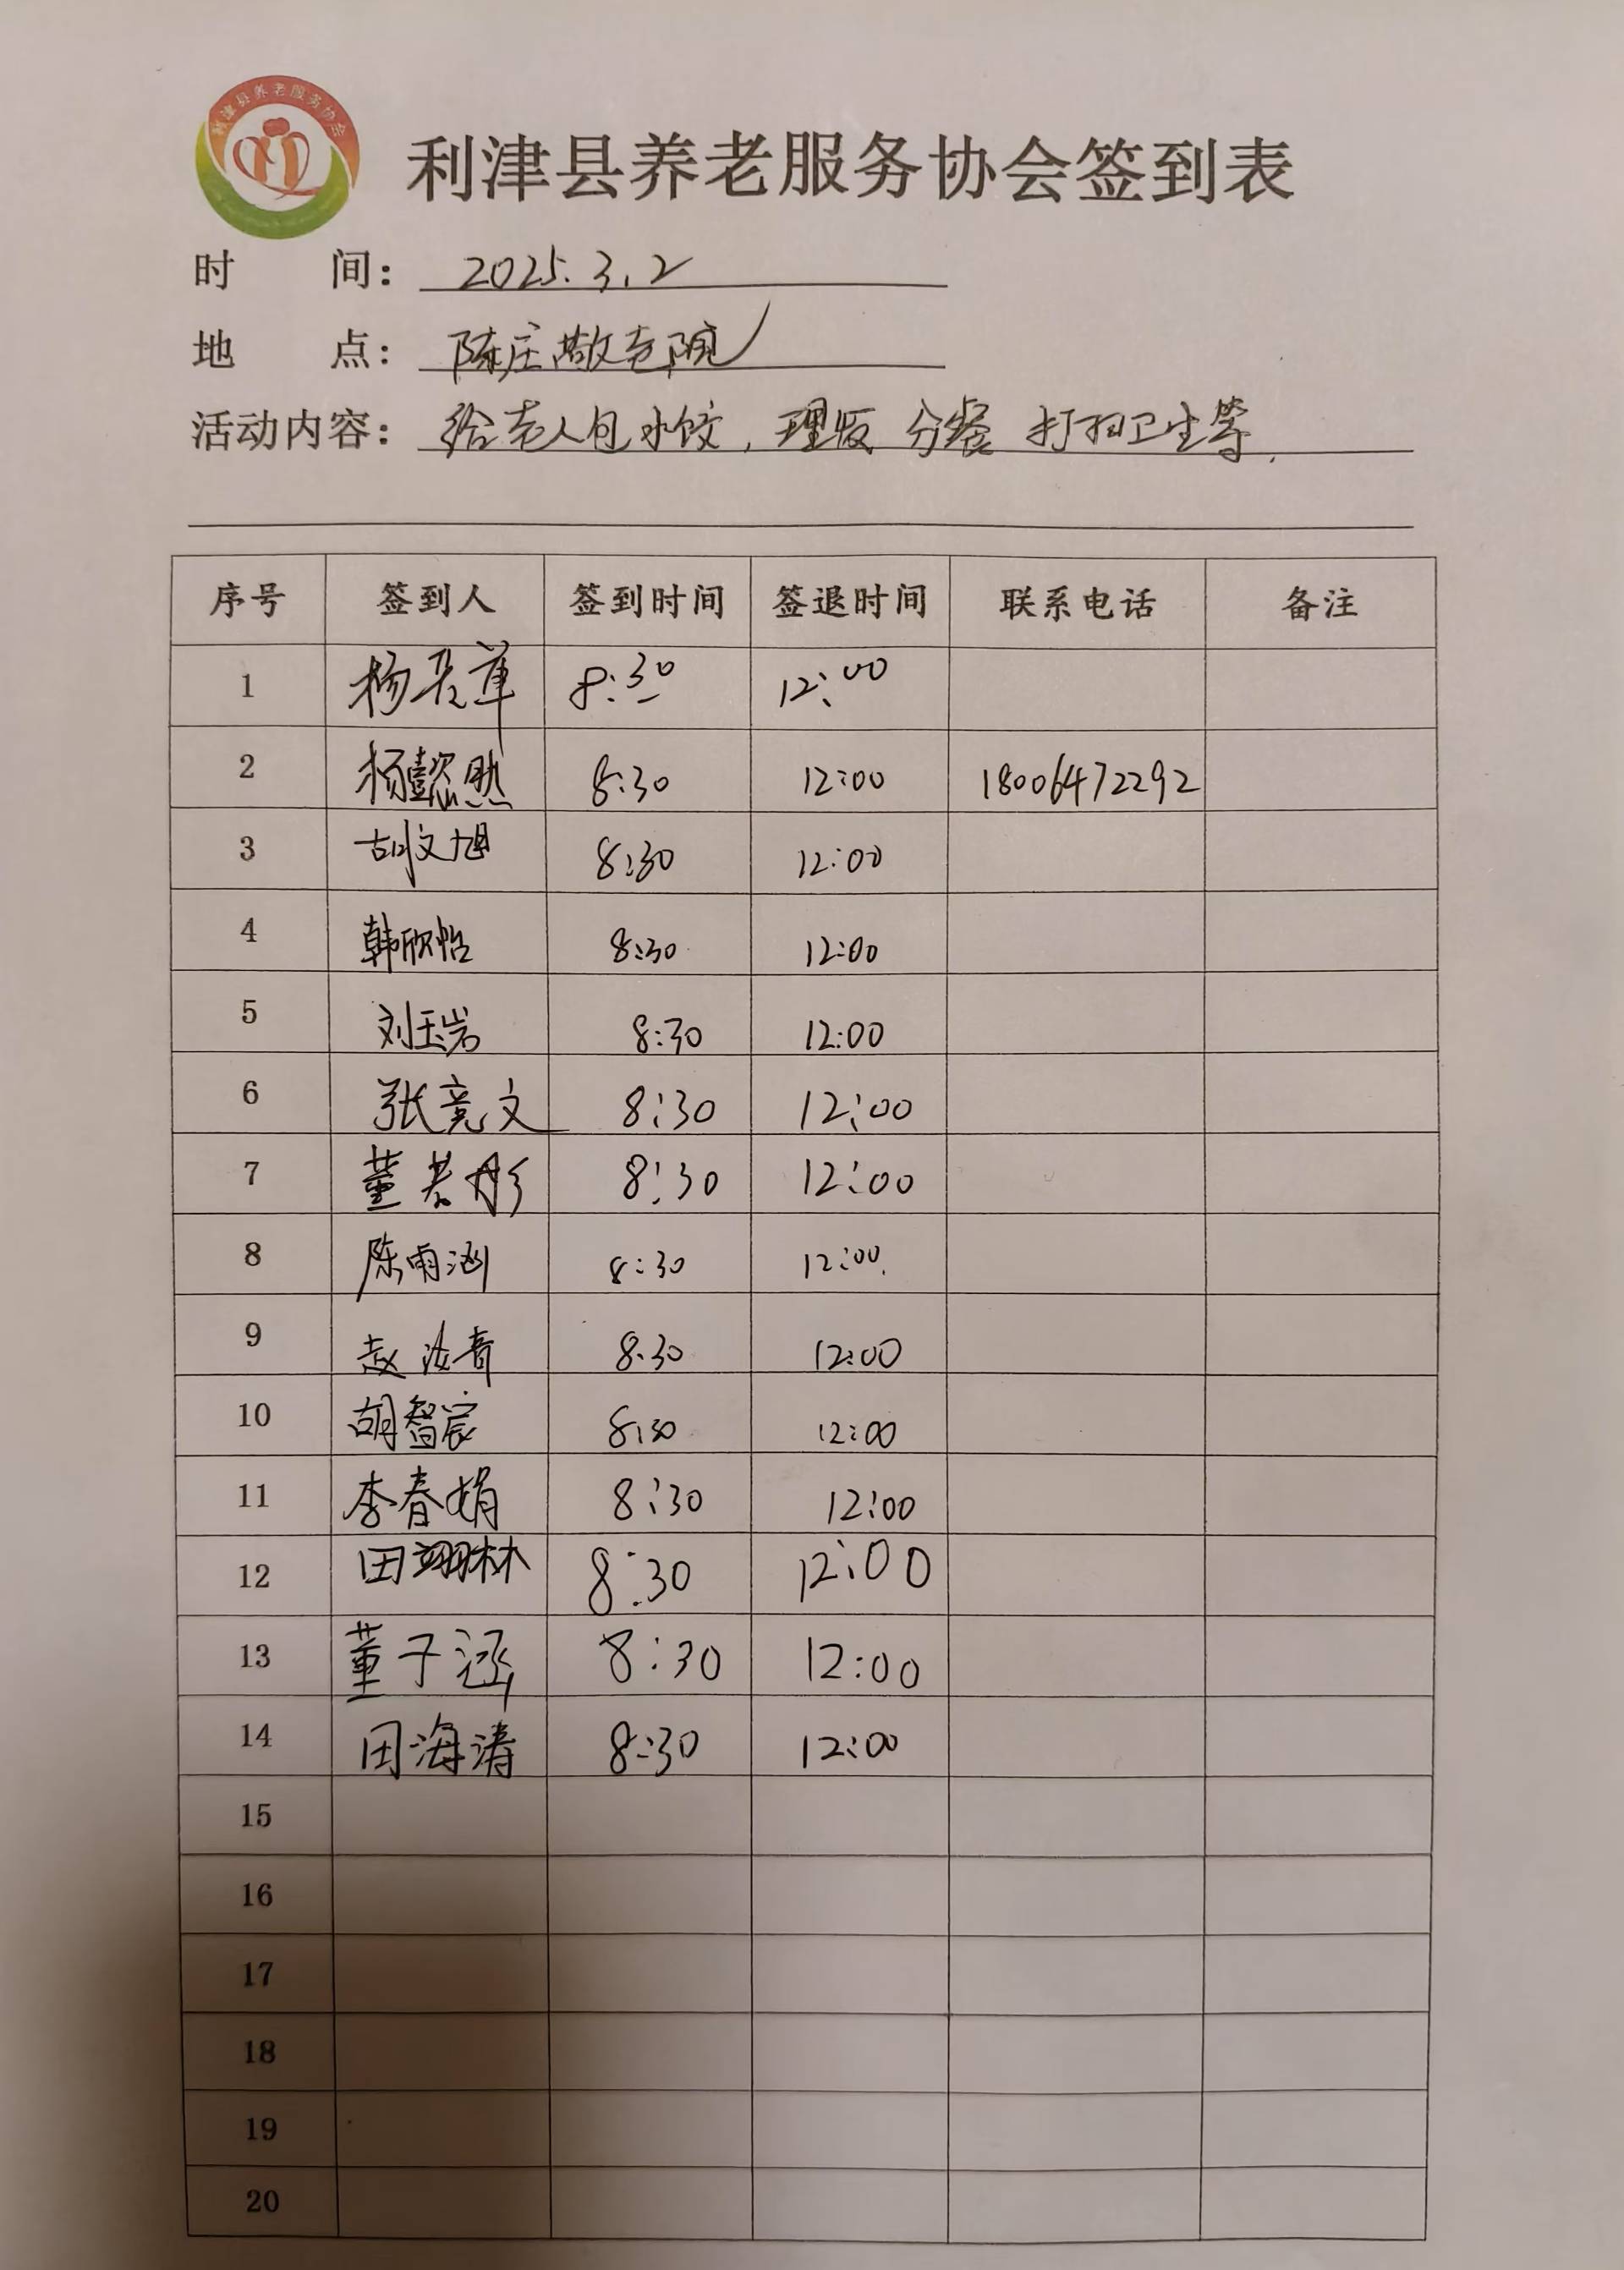 利津县养老服务协会
利津县养老服务协会签到表
时 间： 2025.3.2
地 点： 陈庄敬老院
活动内容： 给老人包水饺，理发 分餐 打扫卫生等.
序号 签到人 签到时间 签退时间 联系电话 备注
1 杨 8:30 12:00
2 杨懿然 8:30 12:00 18006472292
3 胡文旭 8:30 12:00
4 韩欣怡 8:30 12:00
5 刘玉岩 8:30 12:00
6 张竞文 8:30 12:00
7 董若彤 8:30 12:00
8 陈雨涵 8:30 12:00
9 赵 8:30 12:00
10 胡智宸 8:30 12:00
11 李春娟 8:30 12:00
12 田翊林 8:30 12:00
13 董子涵 8:30 12:00
14 田海涛 8:30 12:00
15
16
17
18
19
20